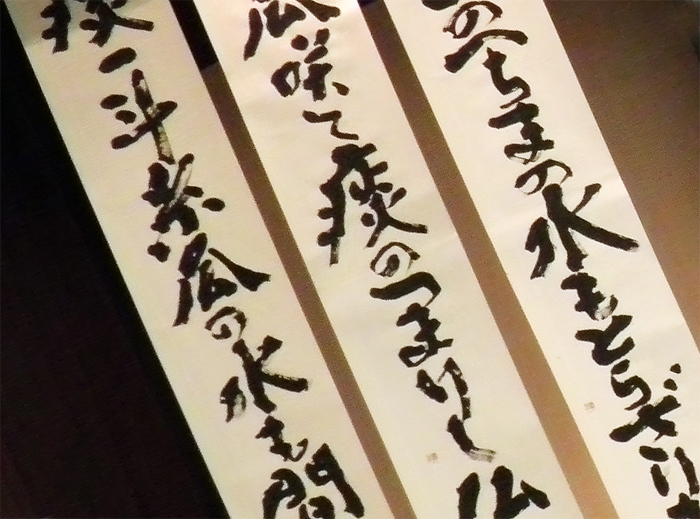 のへちまの水もとらざり
瓜咲て痰のつまりし仏
痰一斗糸瓜の水も間